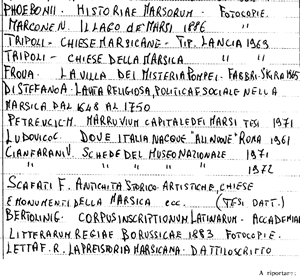 PHOEBONII. HISTORIAE MARSORUM - FOTOCOPIE.
MARCONE N. IL LAGO DE' MARSI 1886 "
TRIPOLI - CHIESE MARSICANE - TIP. LANCIA 1969
TRIPOLI - CHIESE DELLA MARSICA "
FROVA. LA VILLA DEI MISTERI A POMPEI - FABBRI-SKIRA 1965
DI STEFANO A. LA VITA RELIGIOSA, POLITICA E SOCIALE NELLA
MARSICA DAL 1648 AL 1750
PETREVICH M. MARRUVIUM CAPITALE DEI MARSI TESI 1971
LUDOVICO G. DOVE ITALIA NACQUE "ALL NOVE" ROMA 1961
CIANFARANI V. SCHEDE DEL MUSEO NAZIONALE 1971
" " " " " 1972
SCAFATI F. ANTICHITÀ STORICO-ARTISTICHE, CHIESE
E MONUMENTI DELLA MARSICA ecc. (TESI DATT.)
BEROLINI. CORPUS INSCRIPTIONUM LATINARUM - ACCADEMIA
LITTERARUM REGIAE BORUSSICAE 1883 FOTOCOPIE.
LETTA F. R. LA PREISTORIA MARSICANA. DATTILOSCRITTO
A riportare: